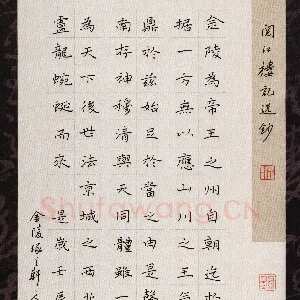 閱江樓記選鈔
金陵為帝王之州自朝迄
據一方無以應山川之王氣
鼎於茲始足於當之由是聲
南存神穆清與天同體雖一
為天下後世法京城之西北
盧龍蜿蜒而來 是歲壬辰
金陵